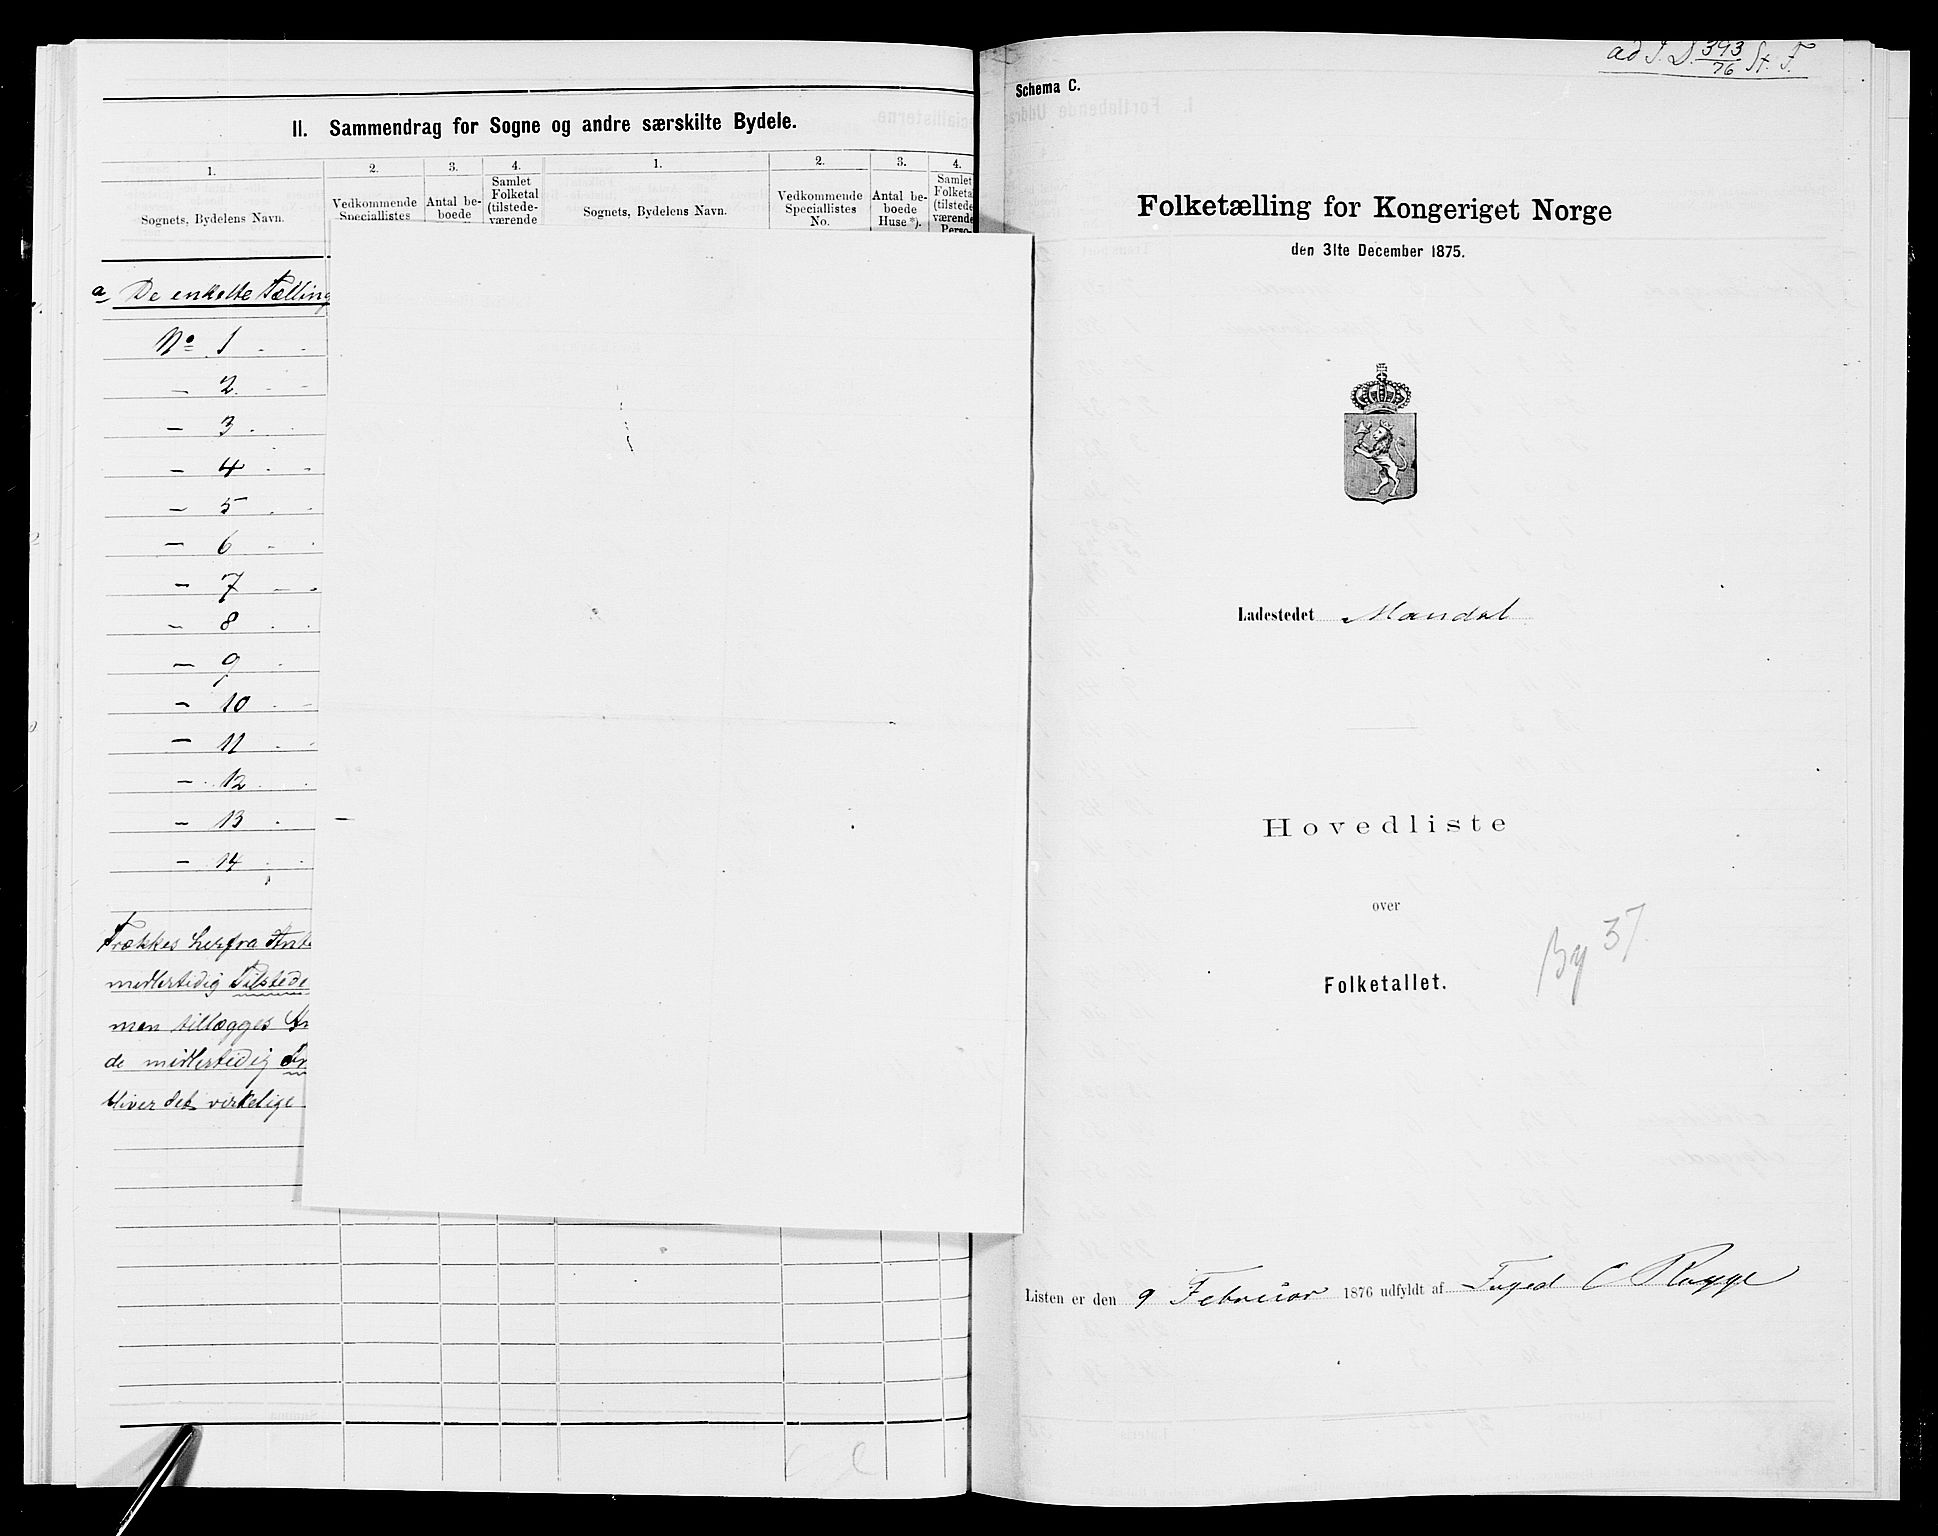 II. Sammendrag for Sogne og andre særskilte Bydele.
1. 2. 3. 4. 1. 2. 3. 4.
Sognets, Bydelens Navn.
Vedkommende
Speciallistes
Antal be-
boede
Samlet
Folketal
(tilstede-
værende
Sognets, Bydelens Navn.
Vedkommende
Speciallistes
No.
Antal be-
boede
Huse*).
Samlet
Folketa
(tilstede
værende
Perso-
a De enkelte Tælling
No 1
- 2
- 3
- 4
- 5
- 6
- 7
- 8
- 9
- 10
- 11
- 12
- 13
- 14
Trækkes herfra Ant
midlertidig Tilstede
men tillægges An
de midlertidig Fr
bliver det virkelige
ad J. D. 393/76 St. F.
Schema C.
Folketælling for Kongeriget Norge
den 31te December 1875.
Ladestedet Mandal
Hovedliste
over
Folketallet.
By 37
Listen er den 9 Februar 1876 udfyldt af Foged C Rugge